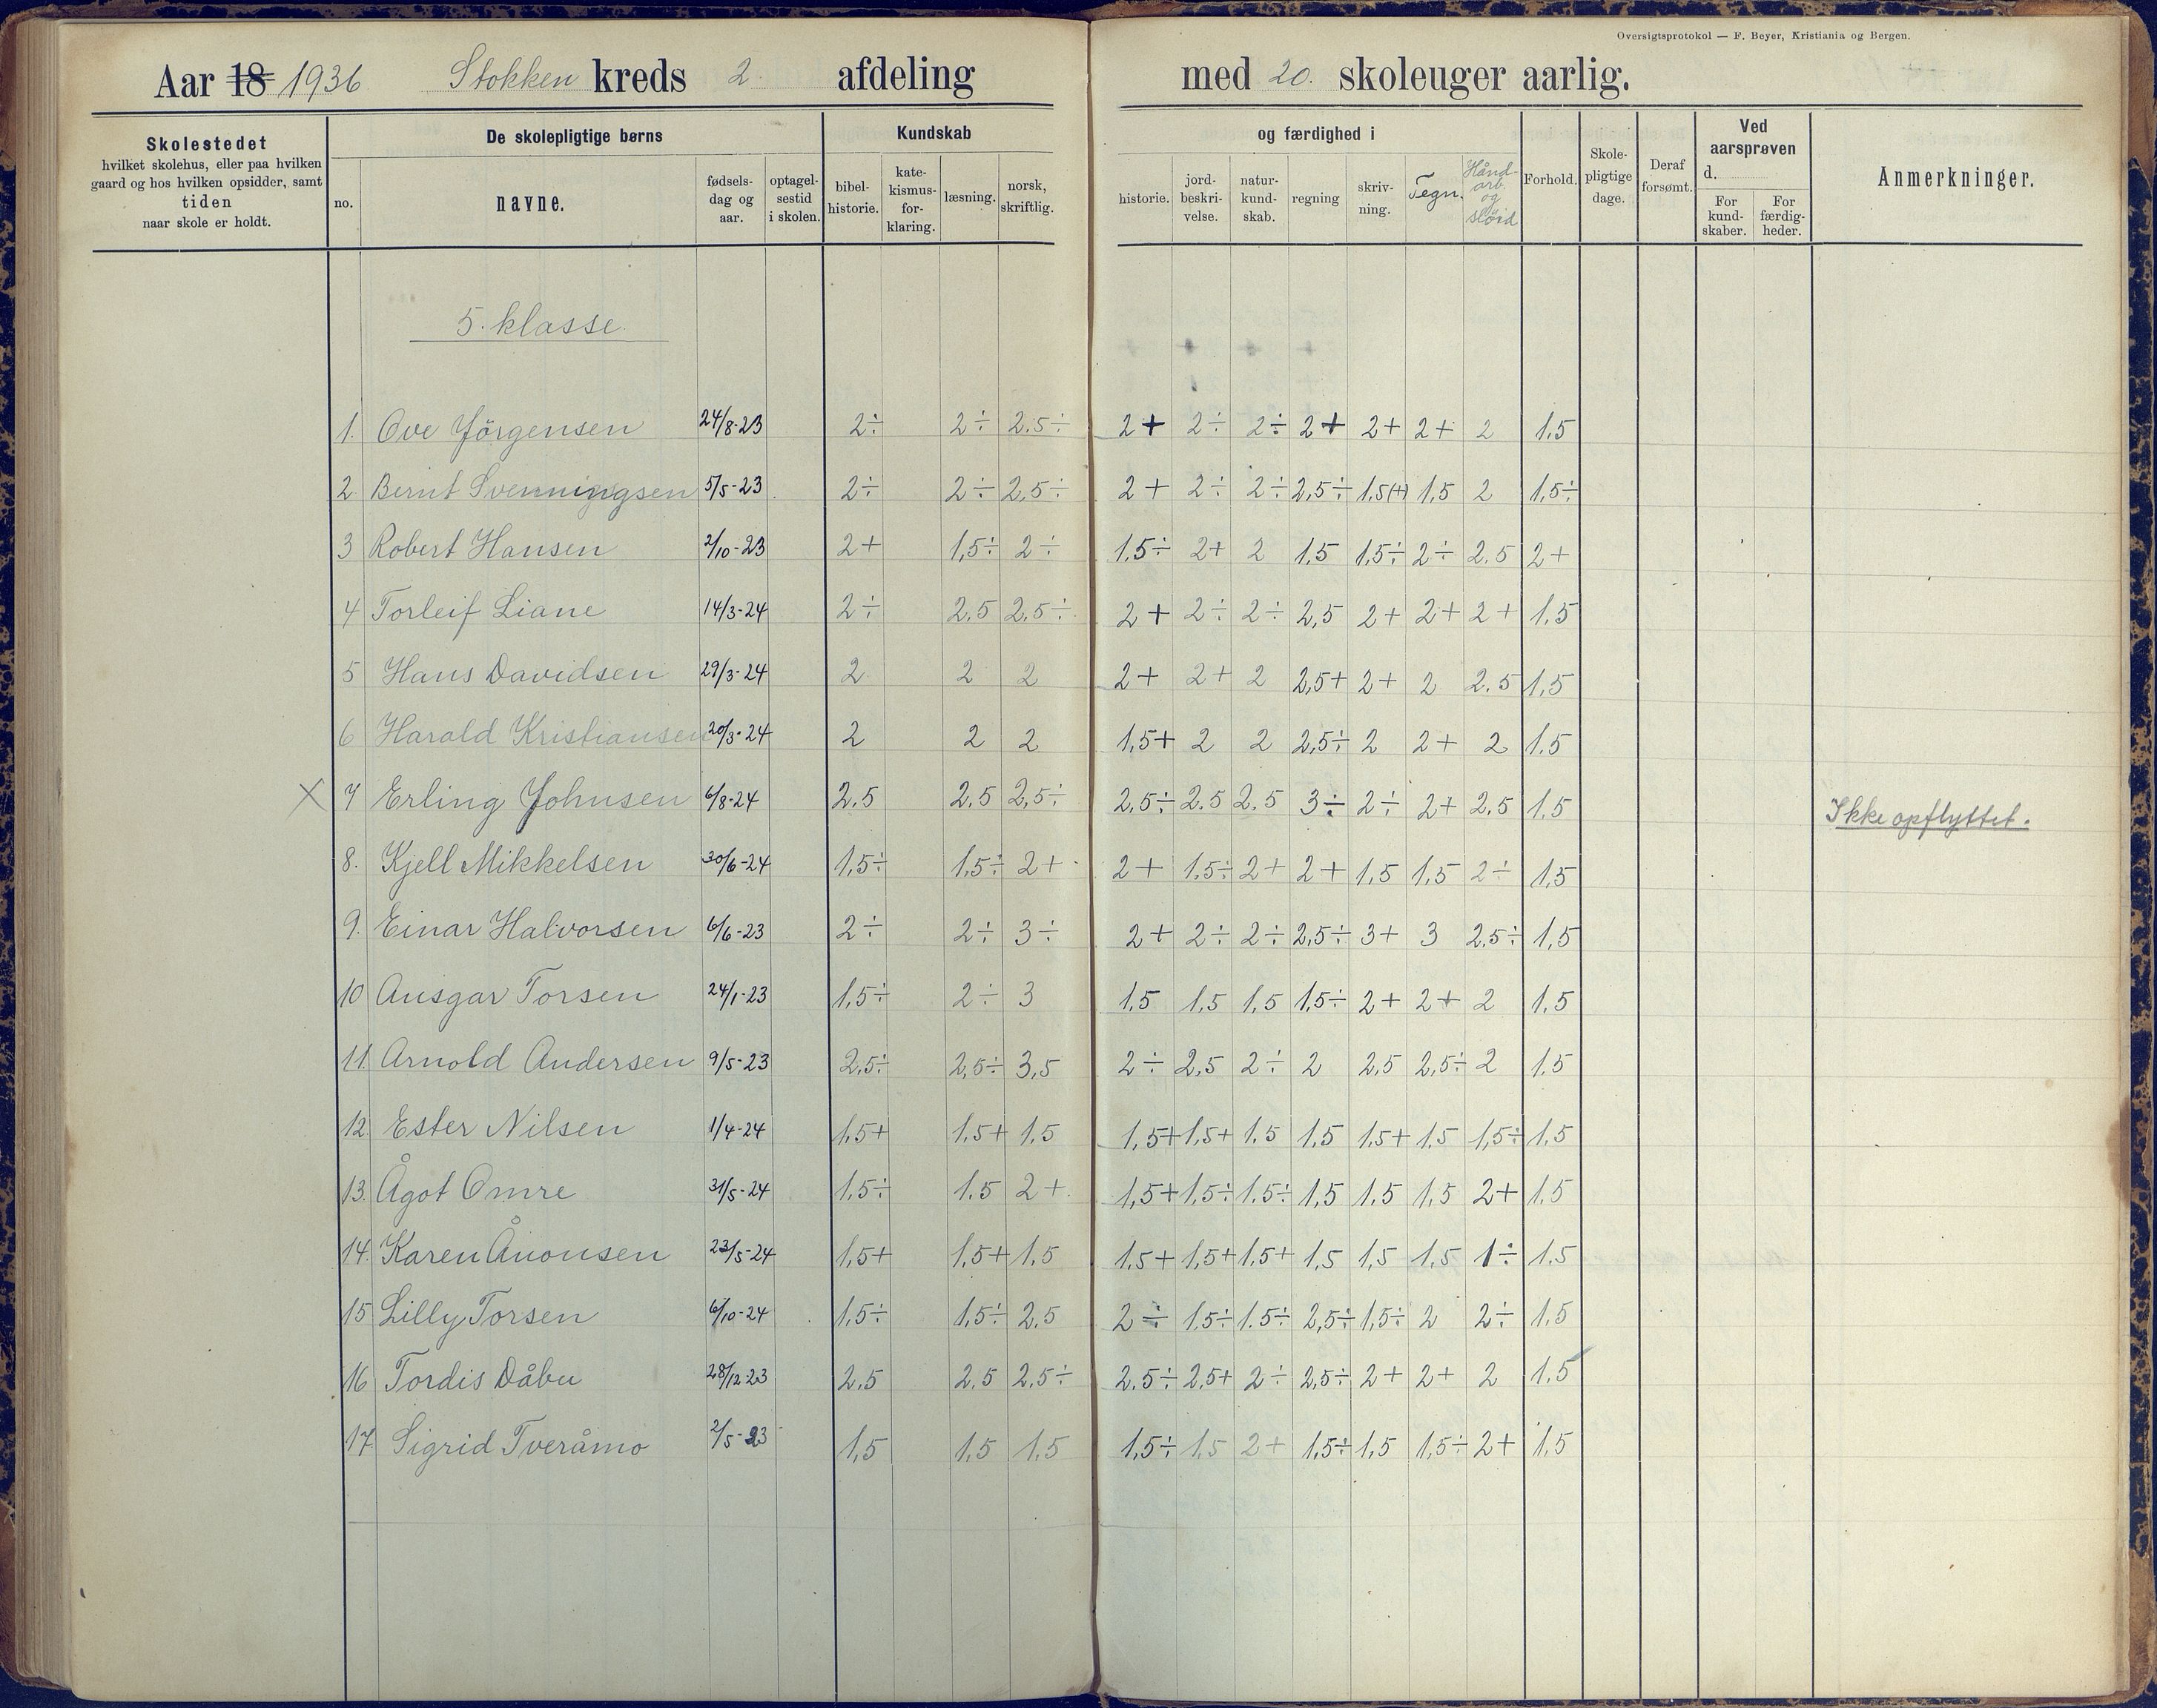 Oversigtsprotokol — F. Beyer, Kristiania og Bergen.
Aar 18 1936 Stokken kreds 2. afdeling med 20. skoleuger aarlig.
Skolestedet
hvilket skolehus, eller paa hvilken
gaard og hos hvilken opsidder, samt
tiden
naar skole er holdt.
De skolepligtige børns
no.
navne.
fødsels-
dag og
aar.
optagel-
sestid
i skolen.
Kundskab
bibel-
historie.
kate-
kismus-
for-
klaring.
læsning.
norsk,
skriftlig.
og færdighed i
historie.
jord-
beskri-
velse.
natur-
kund-
skab.
regning
skriv-
ning.
Tegn.
Hånd-
arb.
og
slöid
Forhold.
Skole-
pligtige
dage.
Deraf
forsømt.
Ved
aarsprøven
d.
For
kund-
skaber.
For
færdig-
heder.
Anmerkninger.
5. klasse.
1. Ove Jörgensen 24/8-23 2÷ 2÷ 2.5÷ 2+ 2÷ 2÷ 2+ 2+ 2+ 2 1.5
2 Bernt Svenningsen 5/5-23 2÷ 2÷ 2,5÷ 2+ 2÷ 2÷ 2,5÷ 1,5(+) 1,5 2 1,5÷
3 Robert Hansen 2/10-23 2+ 1,5÷ 2÷ 1.5÷ 2+ 2 1.5 1.5÷ 2÷ 2.5 2+
4 Torleif Liane 14/3-24 2÷ 2,5 2,5÷ 2+ 2÷ 2÷ 2,5 2+ 2+ 2+ 1.5
5 Hans Davidsen 29/3-24 2 2 2 2+ 2+ 2 2,5+ 2+ 2 2.5 1,5
6 Harald Kristiansen 20/3-24 2 2 2 1,5+ 2 2 2,5÷ 2 2+ 2 1.5
X 7 Erling Johnsen 6/8-24 2.5 2.5 2,5÷ 2.5÷ 2.5 2.5 3÷ 2÷ 2+ 2.5 1.5 Ikke opflyttet.
8. Kjell Mikkelsen 30/6-24 1,5÷ 1,5÷ 2+ 2+ 1.5÷ 2+ 2+ 1,5 1,5 2÷ 1.5
9. Einar Halvorsen 6/6-23 2÷ 2÷ 3÷ 2+ 2÷ 2÷ 2,5÷ 3+ 3 2,5÷ 1,5
10 Ansgar Torsen 24/1-23 1,5÷ 2÷ 3 1,5 1,5 1,5 1,5÷ 2+ 2+ 2 1.5
11. Arnold Andersen 9/5-23 2,5÷ 2,5÷ 3,5 2÷ 2,5 2÷ 2 2,5 2,5÷ 2 1.5
12. Ester Nilsen 1/4-24 1,5+ 1,5+ 1,5 1,5+ 1,5+ 1.5 1,5 1.5+ 1,5 1,5÷ 1.5
13. Ågot Omre 31/5-24 1,5÷ 1.5 2+ 1,5+ 1,5÷ 1.5÷ 1,5 1,5 1,5 2+ 1.5
14. Karen Ånonsen 23/5-24 1,5+ 1,5+ 1,5 1.5+ 1,5+ 1.5+ 1,5 1,5 1,5 1÷ 1.5
15 Lilly Torsen 6/10-24 1,5÷ 1,5÷ 2.5 2÷ 1.5÷ 1.5÷ 2,5÷ 1,5÷ 2 2÷ 1.5
16 Tordis Dåbu 28/12-23 2.5 2.5 2.5÷ 2.5÷ 2,5+ 2÷ 2,5÷ 2+ 2+ 2 1.5
17. Sigrid Tveråmo 2/5-23 1,5 1.5 1.5 1,5÷ 1.5 2+ 1,5÷ 1,5 1,5÷ 2+ 1.5